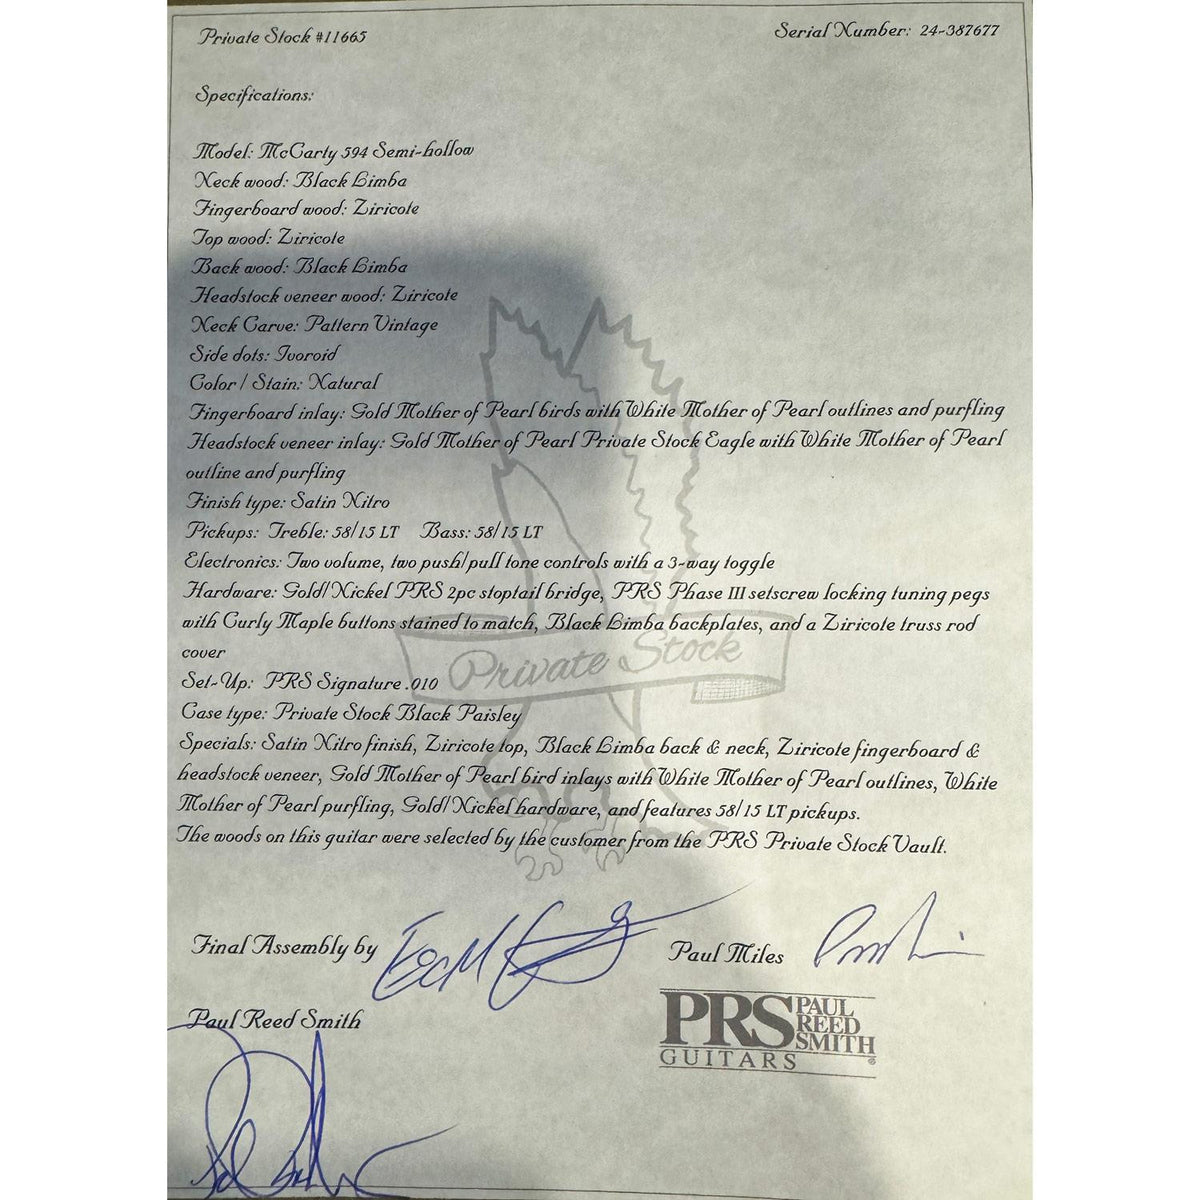 Private Stock #11665
Serial Number: 24-387677
Specifications:
Model: McCarty 594 Semi-hollow
Neck wood: Black Limba
Fingerboard wood: Ziricote
Top wood: Ziricote
Back wood: Black Limba
Headstock veneer wood: Ziricote
Neck Carve: Pattern Vintage
Side dots: Ivoroid
Color / Stain: Natural
Fingerboard inlay: Gold Mother of Pearl birds with White Mother of Pearl outlines and purfling
Headstock veneer inlay: Gold Mother of Pearl Private Stock Eagle with White Mother of Pearl
outline and purfling
Finish type: Satin Nitro
Pickups: Treble: 58/15 LT Bass: 58/15 LT
Electronics: Two volume, two push/pull tone controls with a 3-way toggle
Hardware: Gold/Nickel PRS 2pc stoptail bridge, PRS Phase III setscrew locking tuning pegs
with Curly Maple buttons stained to match, Black Limba backplates, and a Ziricote truss rod
cover
Private Stock
Set-Up: PRS Signature .010
Case type: Private Stock Black Paisley
Specials: Satin Nitro finish, Ziricote top, Black Limba back & neck, Ziricote fingerboard &
headstock veneer, Gold Mother of Pearl bird inlays with White Mother of Pearl outlines, White
Mother of Pearl purfling, Gold/Nickel hardware, and features 58/15 LT pickups.
The woods on this guitar were selected by the customer from the PRS Private Stock Vault.
Final Assembly by
Paul Miles
Paul Reed Smith
PRS PAUL
REED
SMITH
GUITARS ®